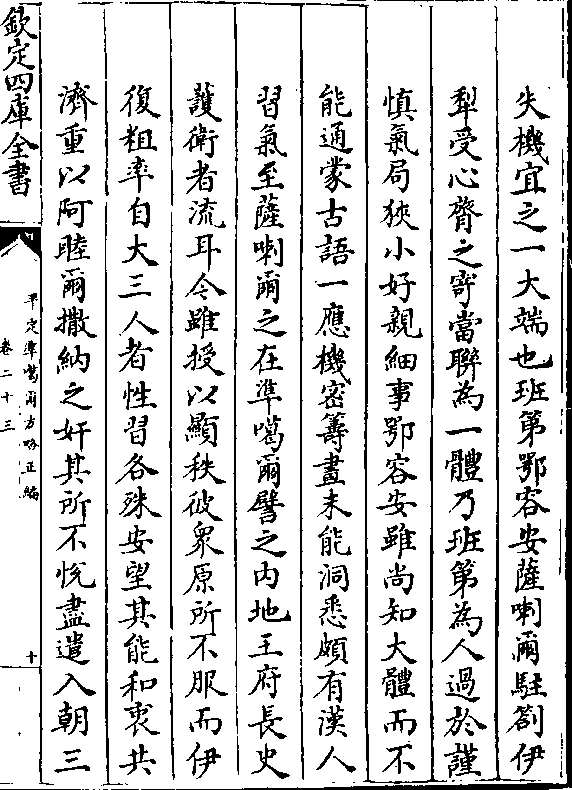 失機宜之一大端也班第鄂容安薩喇爾駐劄伊
犁受心膂之寄當聯為一體乃班第為人過於謹
慎氣局狹小好親細事鄂容安雖尚知大體而不
能通蒙古語一應機密籌畫未能洞悉頗有漢人
習氣至薩喇爾之在準噶爾譬之内地王府長史
護衛者流耳今雖授以顯秩彼衆原所不服而伊
復粗率自大三人者性習各殊安望其能和衷共
濟重以阿睦爾撒納之奸其所不悦盡遣入朝三
欽定四庫全書
平定準噶爾方略正編
卷二十三
十